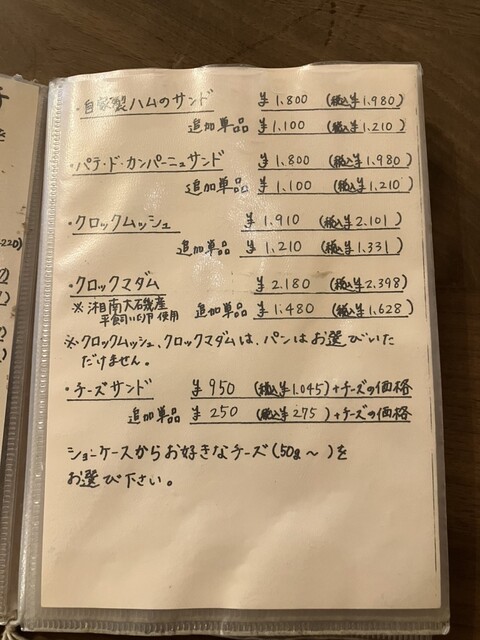 ・自家製ハムのサンド ¥1.800 (税込¥1.980)
追加単品 ¥1.100 (税込¥1.210)
・パテ・ド・カンパーニュサンド ¥1.800 (税込¥1.980)
追加単品 ¥1.100 (税込¥1.210)
・クロックムッシュ ¥1.910 (税込¥2.101)
追加単品 ¥1.210 (税込¥1.331)
・クロックマダム ¥2.180 (税込¥2.398)
※湘南大石磯産
平飼い卵使用 追加単品 ¥1.480 (税込¥1.628)
※クロックムッシュ、クロックマダムは、パンはお選びいた
だけません。
・チーズサンド ¥950 (税込¥1.045)+チーズの価格
追加単品 ¥250 (税込¥275)+チーズの価格
ショーケースからお好きなチーズ(50g〜)を
お選び下さい。